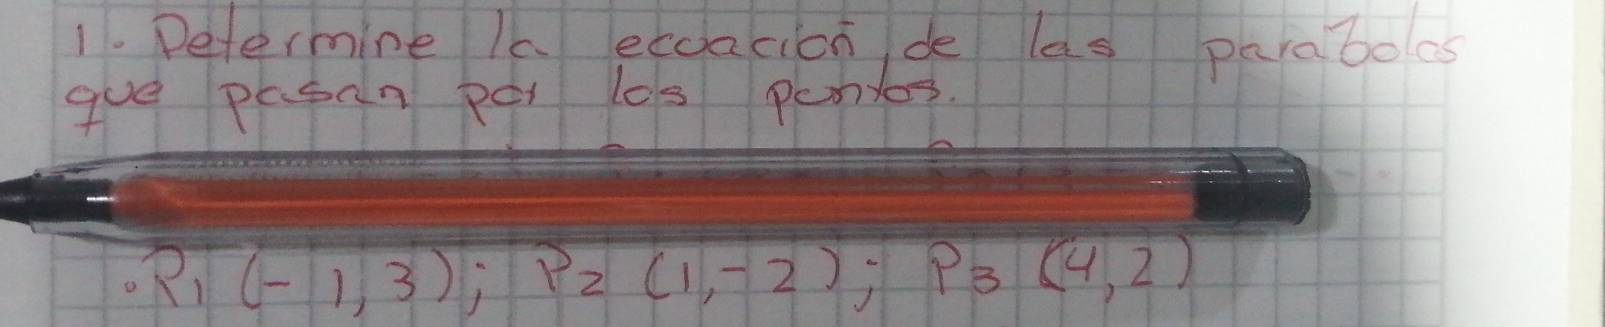 1. Determine la ecuación de las parabolas
que pasan por los pontos.
. P1 (-1,3); P2 (1,-2); P3 (4,2)